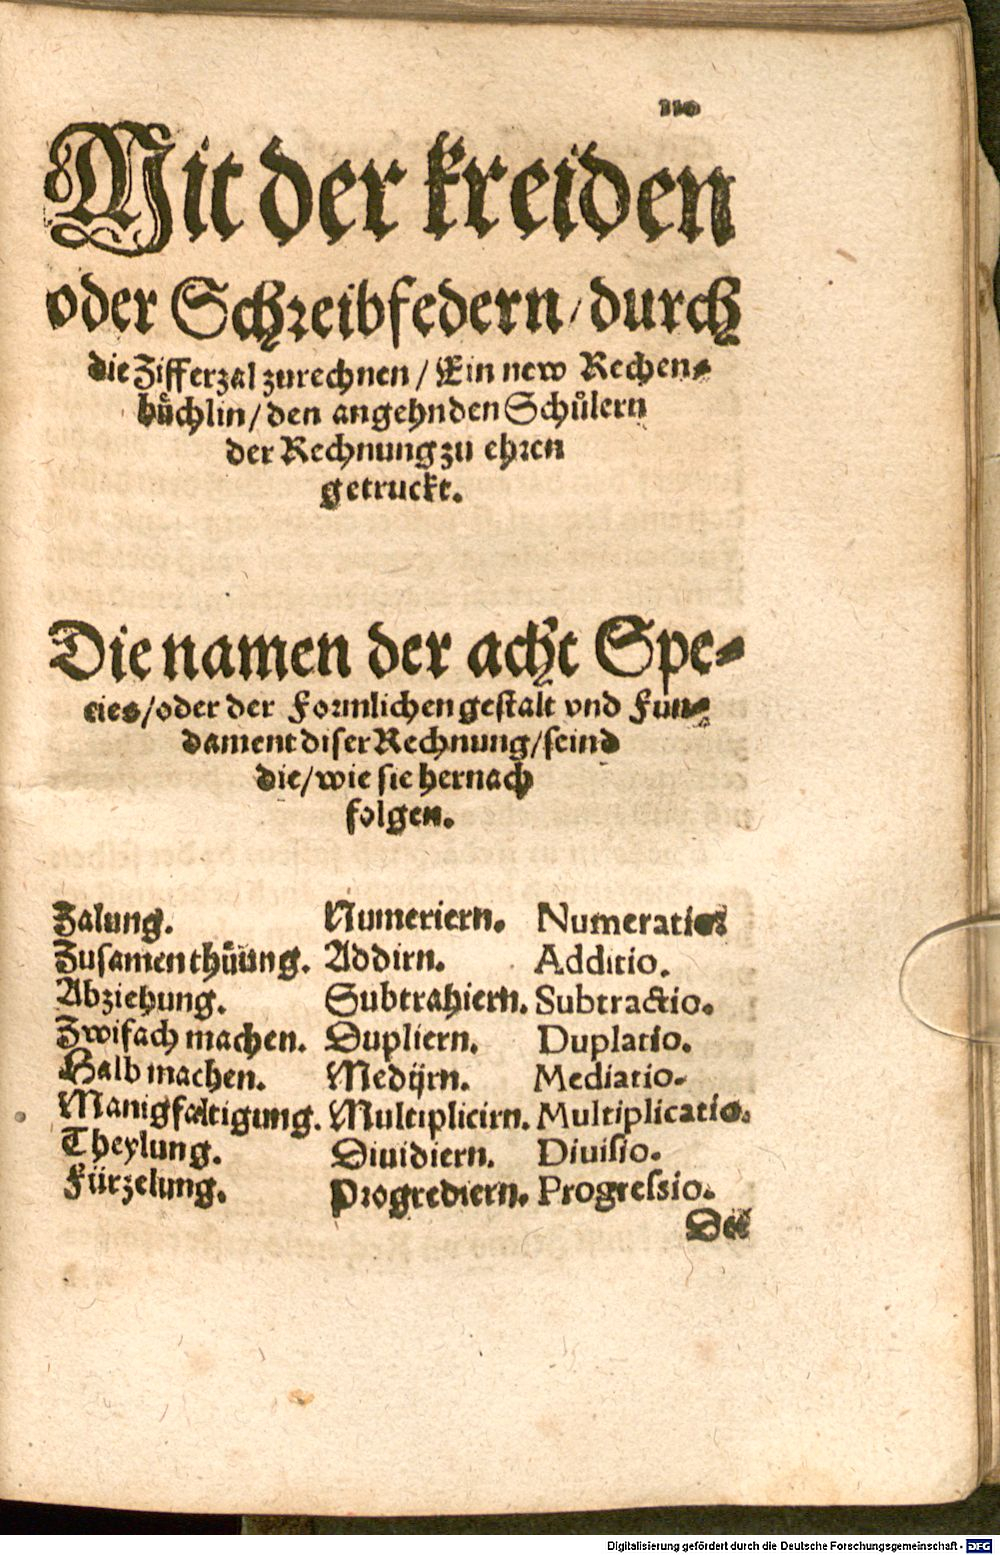 110
Mit der kreiden
oder Schreibfedern / durch
die Zifferzal zurechnen / Ein new Rechen-
bůchlin / den angehnden Schůlern
der Rechnung zu ehren
getruckt.
Die namen der acht Spe-
cies / oder der Formlichen gestalt vnd Fun-
dament diser Rechnung / seind
die / wie sie hernach
folgen.
Zalung. Numeriern. Numeratio.
Zusamenthůung. Addirn. Additio.
Abziehung. Subtrahiern. Subtractio.
Zwifach machen. Dupliern. Duplatio.
Halb machen. Medijrn. Mediatio.
Manigfaltigung. Multiplicirn. Multiplicatio.
Theylung. Diuidiern. Diuisio.
Fürzelung. Progrediern. Progressio.
Digitalisierung gefördert durch die Deutsche Forschungsgemeinschaft - DFG